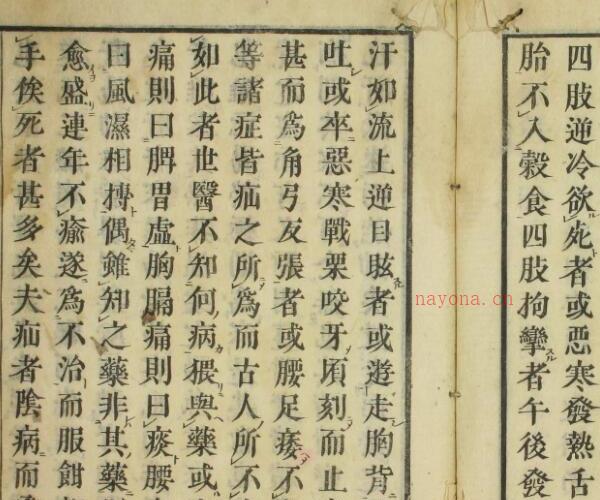 四肢逆冷欲死者或惡寒發熱舌
胎不入穀食四肢拘攣者午後發
汗如流上逆目眩者或遊走胸背
吐或卒惡寒戰栗咬牙頃刻而止
甚而為角弓友張者或腰足痿不
等諸症皆疝之所為而古人所不
如此者世醫不知何病猥與藥或
痛則曰脾胃虛胸膈痛則曰痰腰
曰風濕相摶偶雖知之藥非其藥
愈盛連年不瘉遂為不治而服
手俟死者甚多矣夫疝者陰病而
nayona.cn